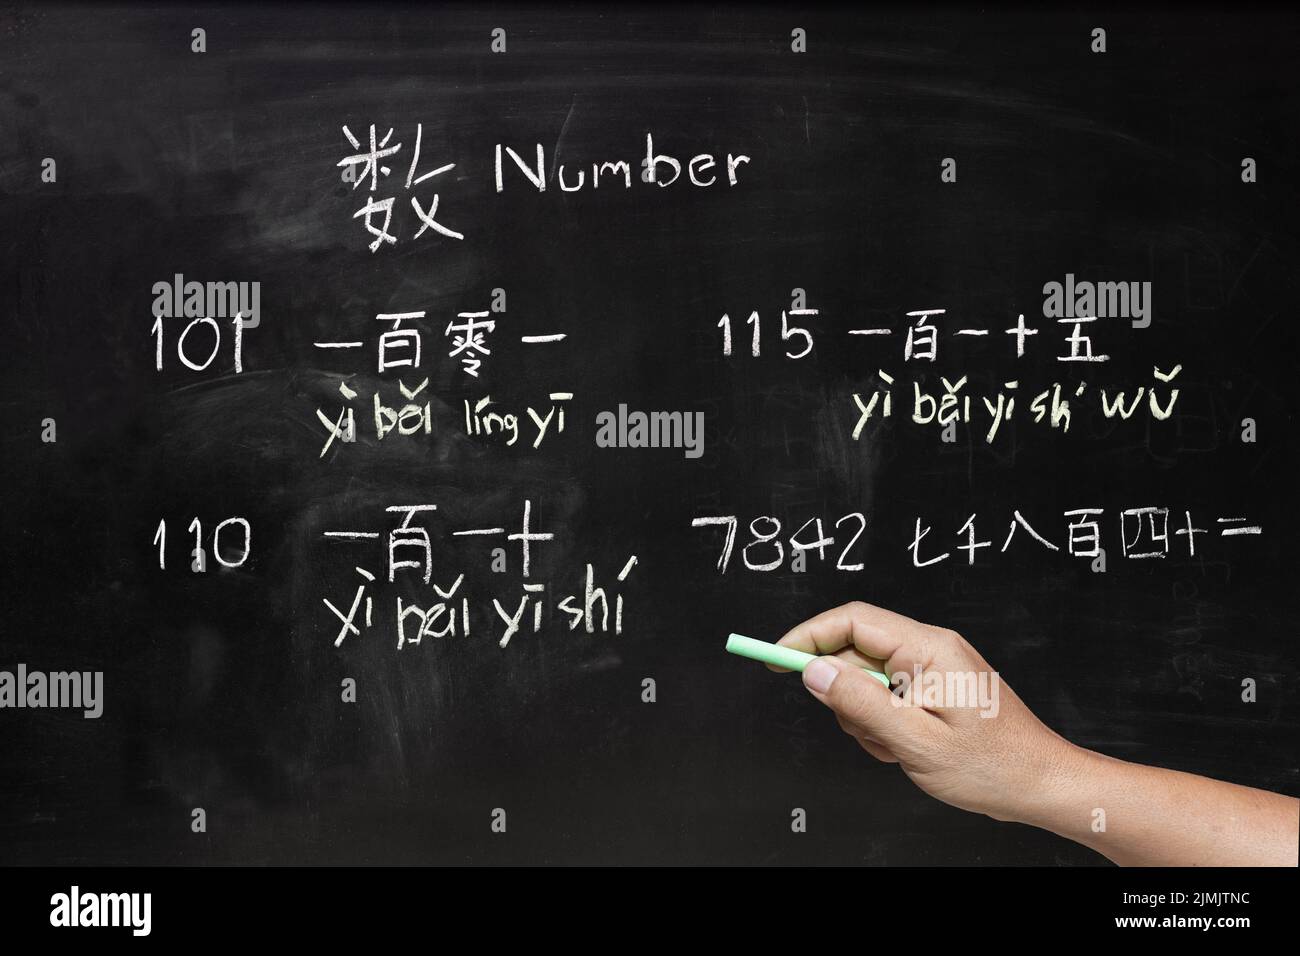 数 Number
101 一百零一
yì bǎi líng yī
115 一百一十五
yì bǎi yī shí wǔ
110 一百一十
yì bǎi yī shí
7842 七千八百四十二
alamy
Image ID: 2JMJTNC
www.alamy.com